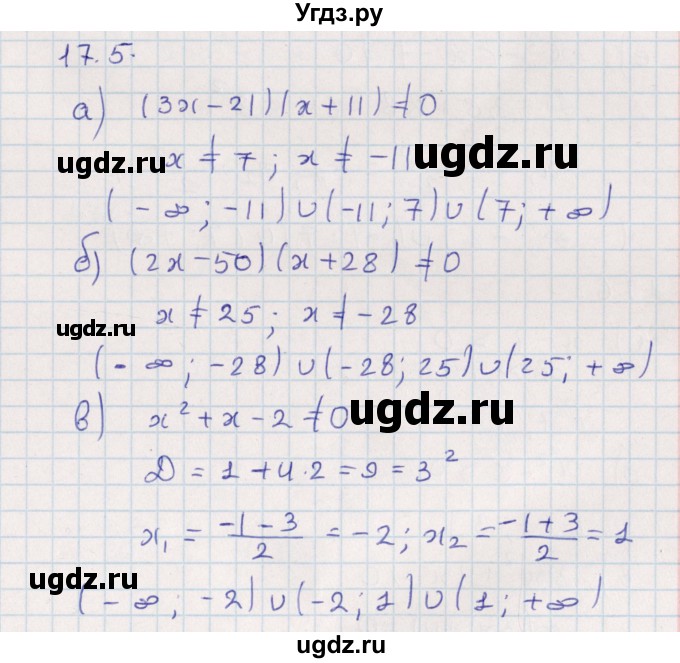 Угдз.ру
17.5.
а) (3x-21)(x+11)≠0
ugdz.ru x ≠ 7; x ≠ -11 ugdz.ru
(-∞; -11)∪(-11; 7)∪(7; +∞)
б) (2x-50)(x+28)≠0
ugdz.ru x ≠ 25; x ≠ -28
(-∞; -28)∪(-28; 25)∪(25; +∞)
в) x²+x-2≠0 ugdz.ru
D = 1+4·2=9=3²
x₁ = (-1-3)/2 = -2; x₂ = (-1+3)/2 = 1
ugdz.ru
(-∞; -2)∪(-2; 1)∪(1; +∞)
ugdz.ru